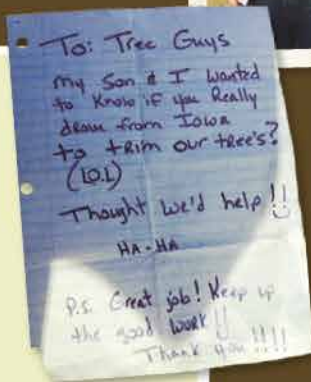 To: Tree Guys
My Son & I wanted
to Know if you Really
drove from Iowa
to tRim ouR tRee's?
(LOL)
Thought we'd help!!
HA-HA
P.S. Great job! Keep up
the good work!!
Thank you!!!!